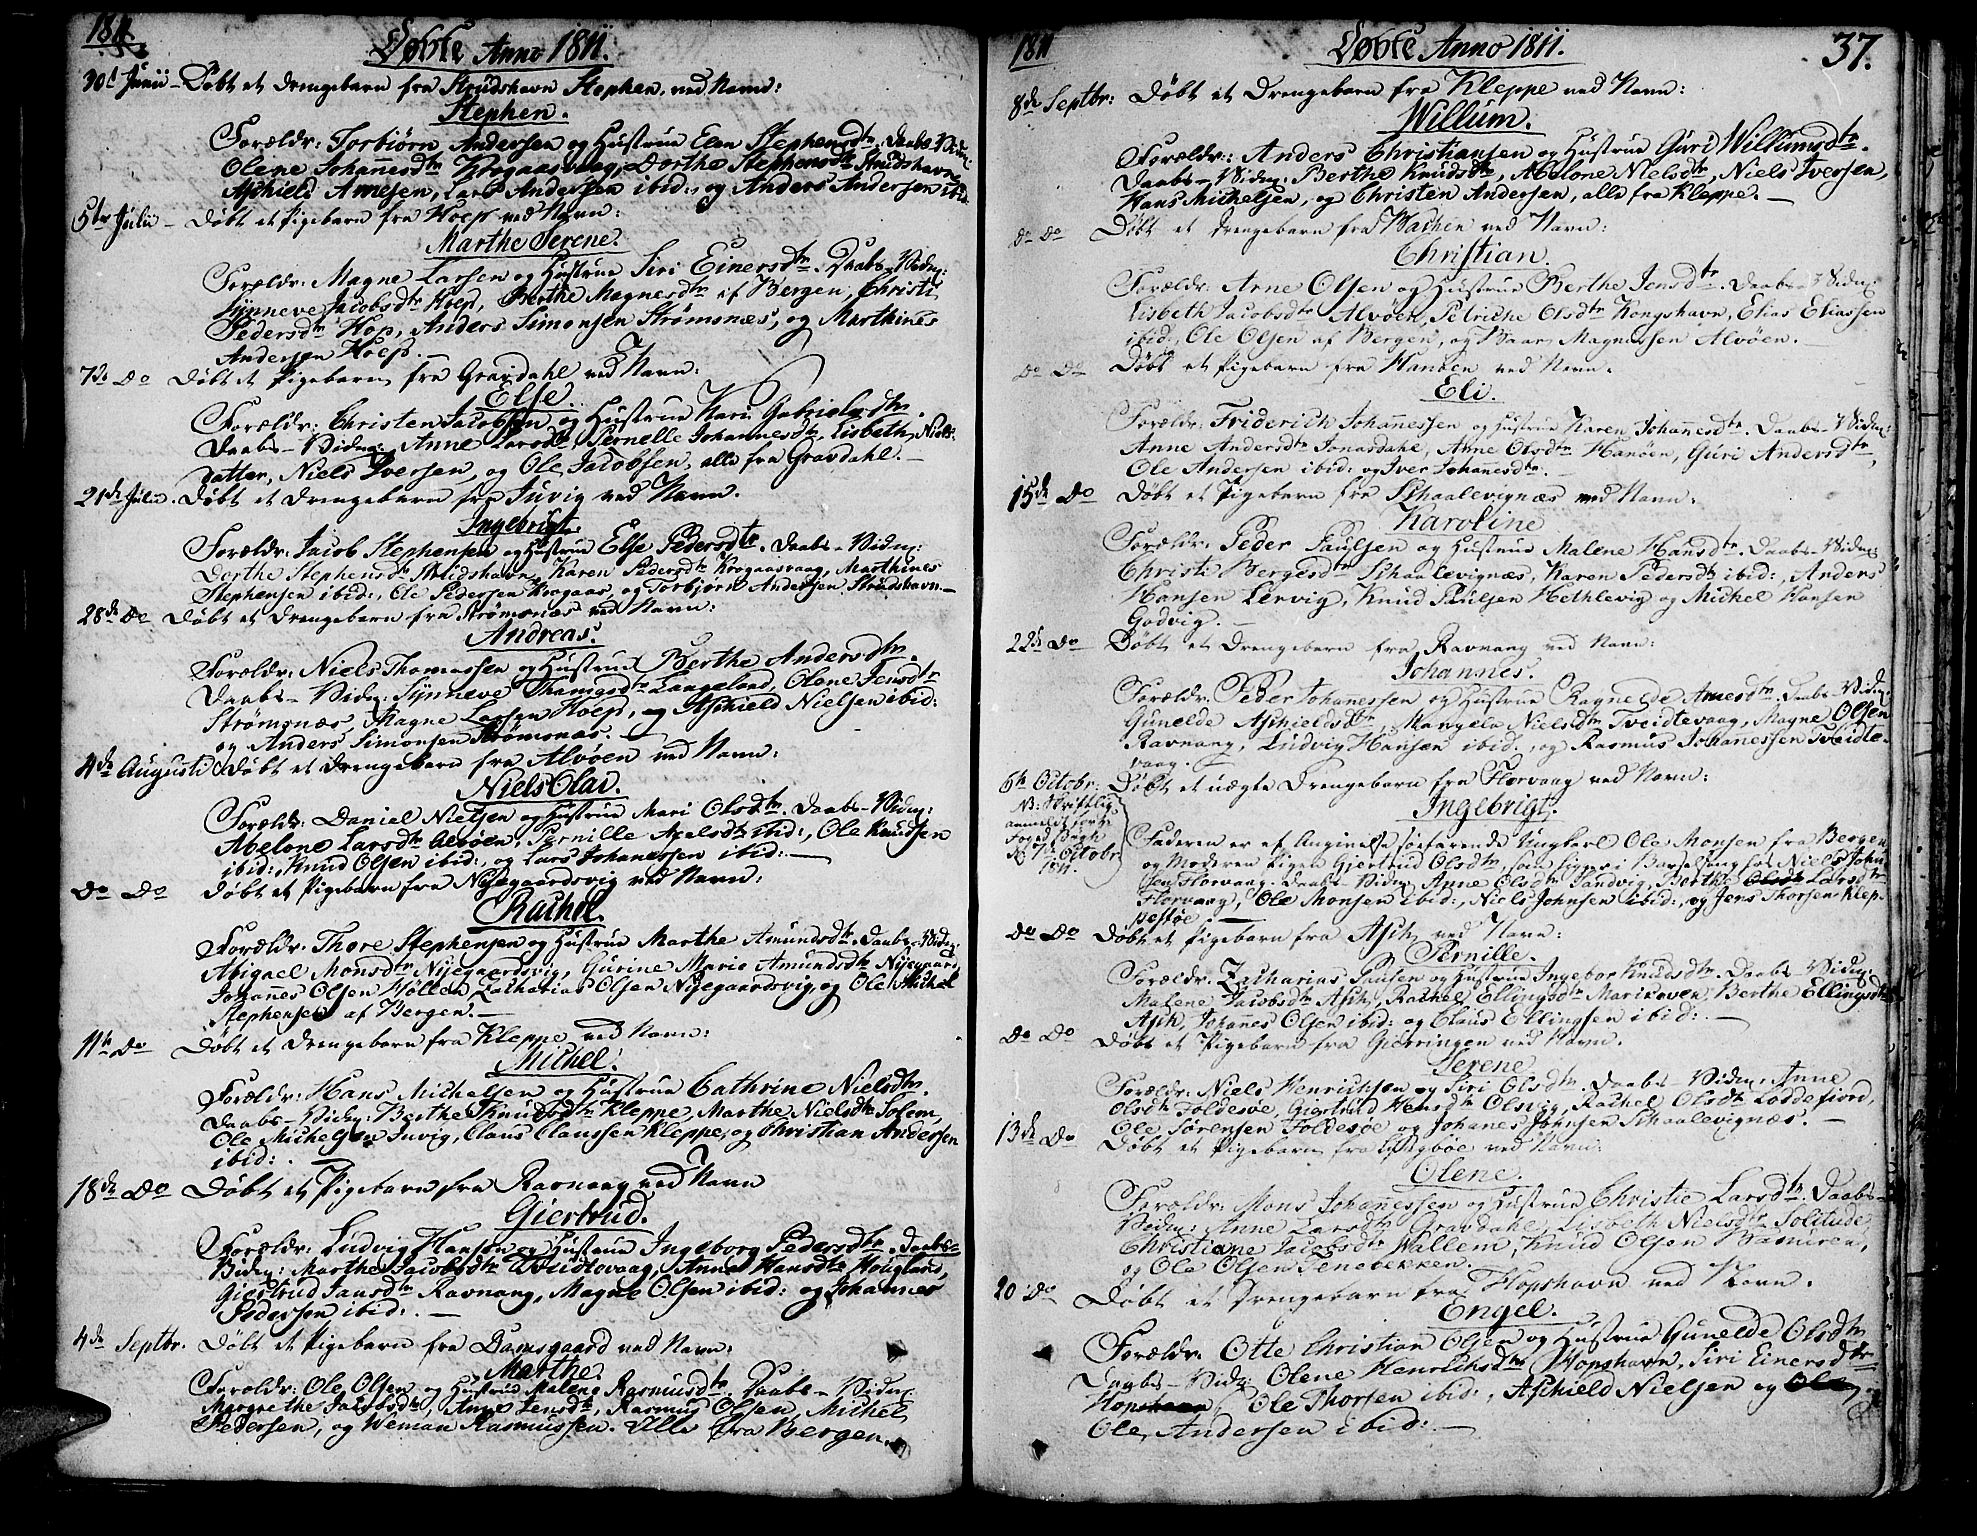 1811
Døbte Anno 1811.
30d Junii – Døbt et Drengebarn fra Strudshavn Stephen, ved Navn:
Stephen.
Forældr: Torbiørn Andersen og Hustrue Elen Stephensdtr. Daabs-Vidn:
Olene Johannesdtr Krogaasvaag, Dorthe Stephensdtr Strudshavn,
Aschield Arnesen, Lars Andersen ibid:, og Anders Andersen ibid:
5te Julii – Døbt et Pigebarn fra Hoep ved Navn:
Marthe Serene.
Forældr: Magne Larsen og Hustrue Siri Einersdtr. Daabs-Vidn:
Synneve Jacobsdtr Hoep, Berthe Magnesdtr af Bergen, Christi
Pedersdtr Hop, Anders Simonsen Strømsnæs, og Marthines
Andersen Hoep. –
7de Do Døbt et Pigebarn fra Gravdahl ved Navn:
Else.
Forældr: Christen Jacobsen og Hustrue Kari Gabrielsdtr.
Daabs-Vidn: Anne Larsdtr, Pernelle Johannesdtr, Lisbeth Niels-
datter, Niels Iversen, og Ole Jacobsen, alle fra Gravdahl. –
21de Julii. Døbt et Drengebarn fra Juvig ved Navn.
Ingebrigt.
Forældr: Jacob Stephensen og Hustrue Else Pedersdtr. Daabs-Vidn:
Dorthe Stephensdtr Strudshavn, Karen Pedersdtr Krogaasvaag, Marthinus
Stephensen ibid:, Ole Pedersen Krogaas, og Torbjørn Andersen Strudshavn. –
28de Do Døbt et Drengebarn fra Strømsnæs ved Navn:
Andreas.
Forældr: Niels Thomassen og Hustrue Berthe Andersdtr.
Daabs-Vidn: Synneve Thomasdtr Langeland, Olene Jensdtr
Strømsnæs, Magne Larsen Hoep, og Aschield Nielsen ibid:
og Anders Simonsen Strømsnæs. –
4de Augusti Døbt et Drengebarn fra Alvøen ved Navn:
Niels Olai.
Forældr: Daniel Nielsen og Hustrue Mari Olsdtr. Daabs-Vidn:
Abelone Larsdtr Alvøen, Pernille Axelsdtr ibid:, Ole Knudsen
ibid:, Knud Olsen ibid:, og Lars Johanessen ibid: –
Do Do Døbt et Pigebarn fra Nyegaardsvig ved Navn:
Rachel.
Forældr: Thore Stephensen og Hustrue Marthe Amundsdtr. Daabs-Vidn:
Abigael Monsdtr Nyegaardsvig, Gurine Marie Amundsdtr Nyegaard,
Johannes Olsen Høllen Zacharias Olsen Nyegaardsvig, og Ole Michel
Stephensen af Bergen. –
11te Do Døbt et Drengebarn fra Kleppe ved Navn:
Michel.
Forældr: Hans Michelsen og Hustrue Cathrine Nielsdtr.
Daabs-Vidn: Berthe Knudsdtr Kleppe, Marthe Nielsdtr Solem,
Ole Michelsen Juvig, Claus Claussen Kleppe, og Christian Andersen
ibid: . –
18de Do Døbt et Pigebarn fra Ravnang ved Navn
Giertrud.
Forældr: Ludvig Hansen og Hustrue Ingeborg Pedersdtr. Daabs-
Vidn: Marthe Jacobsdtr Tveidtevaag, Anna Hansdtr Hougland,
Giertrud Jansdtr Ravnang, Magne Olsen ibid: og Johannes
Pedersen ibid: . –
4de Septbr. Døbt et Pigebarn fra Damsgaard ved Navn:
Marthe.
Forældr: Ole Olsen og Hustrue Malene Rasmusdtr. Daabs-Vidn:
Margrethe Jacobsdtr, Anne Jensdtr, Rasmus Olsen, Michel
Pedersen, og Weman Rasmussen. Alle fra Bergen.
1811
Døbte Anno 1811.
37.
8de Septbr: Døbt et Drengebarn fra Kleppe ved Navn:
Willum.
Forældr: Anders Christiansen og Hustrue Guri Willumsdtr.
Daabs-Vidn: Berthe Knudsdtr, Abelone Nielsdtr, Niels Iversen,
Hans Michelsen, og Christen Andersen, alle fra Kleppe. –
Do Do Døbt et Drengebarn fra Backen ved Navn:
Christian.
Forældr: Arne Olsen og Hustrue Berthe Jensdtr. Daabs-Vidn:
Lisbeth Jacobsdtr Alvøen, Petriche Olsdtr Kongshavn, Elias Eliassen
ibid:, Ole Olsen af Bergen, og Baar Magnessen Alvøen. –
Do Do Døbt et Pigebarn fra Hanøen ved Navn:
Eli.
Forældr: Friderich Johanessen og Hustrue Karen Johannesdtr. Daabs-Vidn:
Anne Andersdtr Jonasdahl, Anne Olsdtr Hanøen, Guri Andersdtr,
Ole Andersen ibid: og Iver Johannesdtr. –
15de Do Døbt et Pigebarn fra Schaalevignæs ved Navn:
Karoline
Forældr: Peder Paulsen og Hustrue Malene Hansdtr. Daabs-Vidn:
Christi Bergesdtr Schaalevignæs, Karen Pedersdtr ibid:, Anders
Hansen Lervig, Knud Paulsen Hethlevig og Michel Hansen
Godvig. –
22de Do Døbt et Drengebarn fra Ravnang ved Navn:
Johannes.
Forældr: Peder Johannessen og Hustrue Ragnelde Arnesdtr. Daabs-Vidn:
Gunelde Aschieldsdtr, Mangela Nielsdtr Tveidtevaag, Magne Olsen
Ravnang, Ludvig Hansen ibid:, og Rasmus Johannessen Tveidte-
vaag. –
6te Octobr: Døbt et uægte Drengebarn fra Florvaag ved Navn:
NB: Skriftlig
anmeldt for
Foged
d: 7de Octobr
1811.
Ingebrigt.
Faderen er en Angivelse søefarende Ungkarl Ole Monsen fra Bergen
og Moderen Pigen Giertrud Olsdtr, som ligger i Barselseng hos Niels John-
sen Florvaag. Daabs-Vidn: Anne Olsdtr Sandvig, Berthe Larsdtr
Florvaag, Ole Monsen ibid:, Niels Johnsen ibid:, og Jens Thorsen Klep-
pestøe. –
Do Do Døbt et Pigebarn fra Asch ved Navn:
Pernille.
Forældr: Zacharias Paulsen og Hustrue Ingebor Knudsdtr. Daabs-Vidn:
Malene Jacobsdtr Asch, Rachel Ellingsdtr Marikoven, Berthe Ellingsdtr
Asch, Johannes Olsen ibid: og Claus Ellingsen ibid: . –
Do Do Døbt et Pigebarn fra Gierringen ved Navn.
Serene.
Forældr: Niels Henrichsen og Siri Olsdtr. Daabs-Vidn: Anne
Olsdtr Foldesøe, Giertrud Hensdtr Olsvig, Rachel Olsdtr Loddefiord,
Ole Sørensen Foldesøe og Johanes Johnsen Schaalevignæs. –
13de Do Døbt et Pigebarn fra Lyngbøe ved Navn:
Olene.
Forældr: Mons Johannessen og Hustrue Christie Larsdtr. Daabs-
Vidn: Anne Larsdtr Gravdahl, Lisbeth Nielsdtr Solitude,
Christiane Jacobsdtr Wallem, Knud Olsen Basuren,
og Ole Olsen Tenebekken.
20 Do Døbt et Drengebarn fra Hopshavn ved Navn.
Engel.
Forældr: Otte Christian Olsen og Hustrue Gunelde Olsdtr.
Daabs-Vidn: Olene Henrichsdtr Hopshavn, Siri Einersdtr
Hopshavn, Ole Thorsen ibid:, Aschield Nielsen og
Ole Andersen ibid: . –